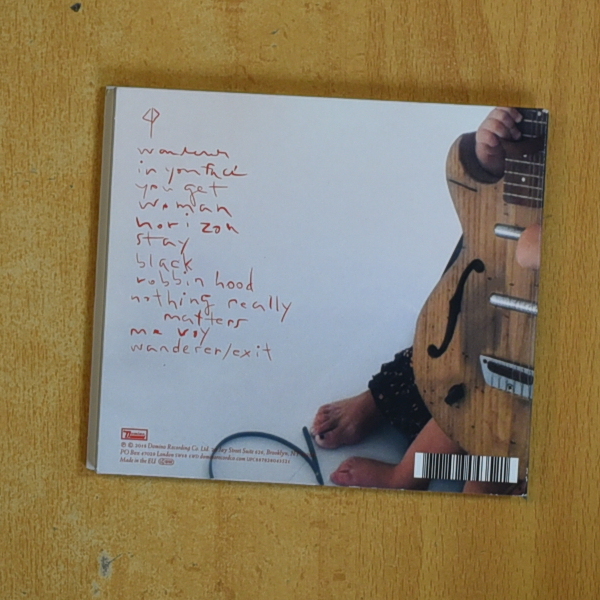 wanderer
in your face
you get
woman
horizon
stay
black
robbin hood
nothing really
matters
me voy
wanderer/exit
Domino
℗ © 2018 Domino Recording Co. Ltd. Bay Street Suite Brooklyn, NY
PO Box 47029 London SW18 dominorecordco.com
Made in the EU